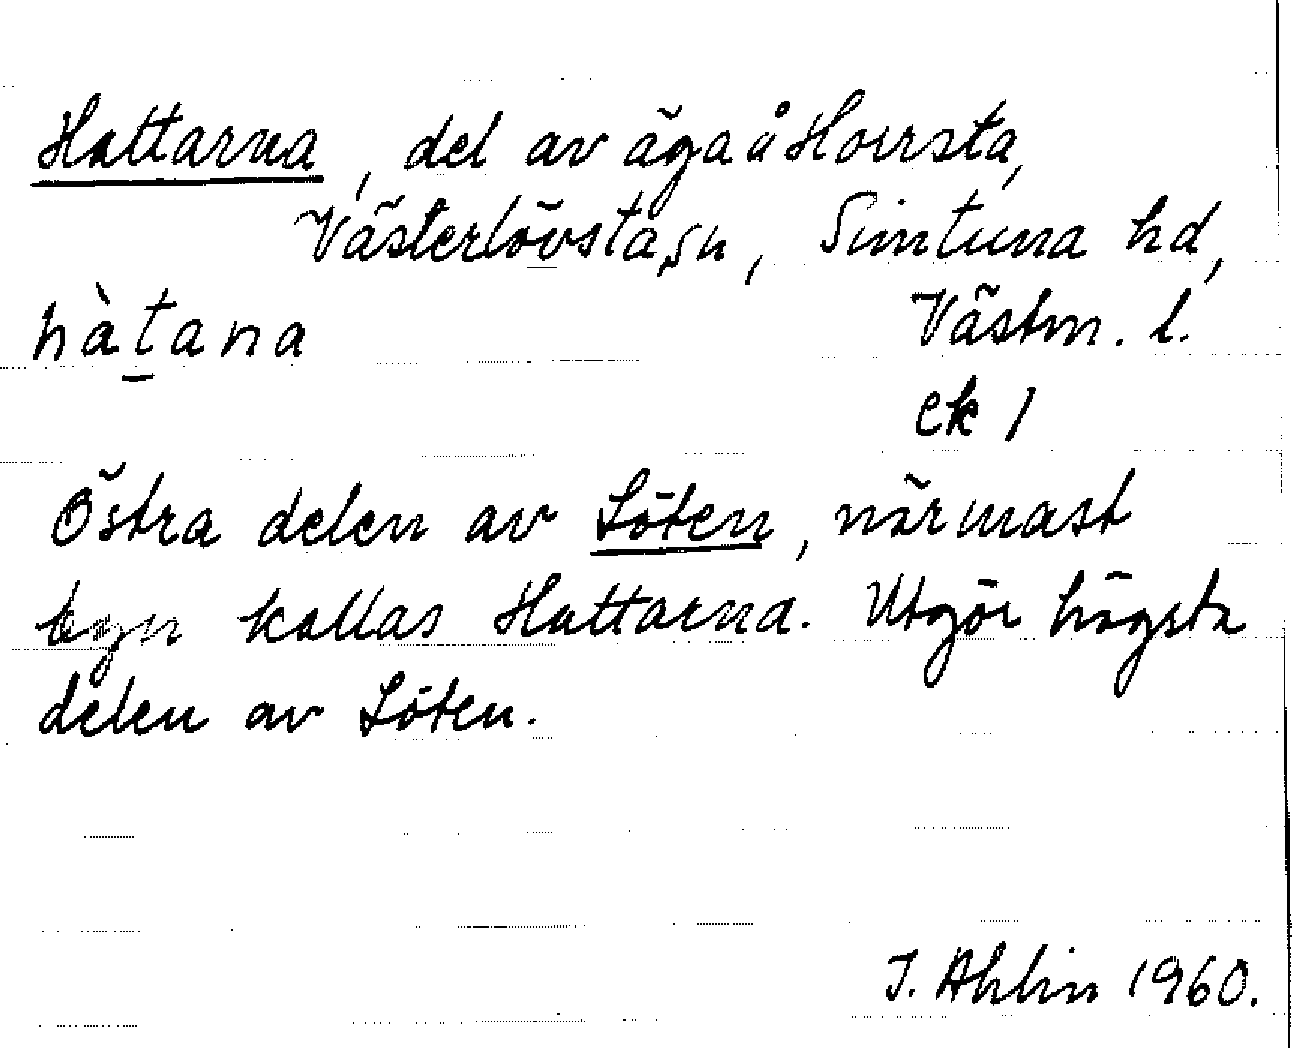 Hattarna, del av äga å Horrsta,
Västerlövsta sn, Simtuna hd,
hàṯana Västm. l.
ek 1
Östra delen av Löten, närmast
byn kallas Hattarna. Utgör högsta
delen av Löten.
I. Ahlin 1960.